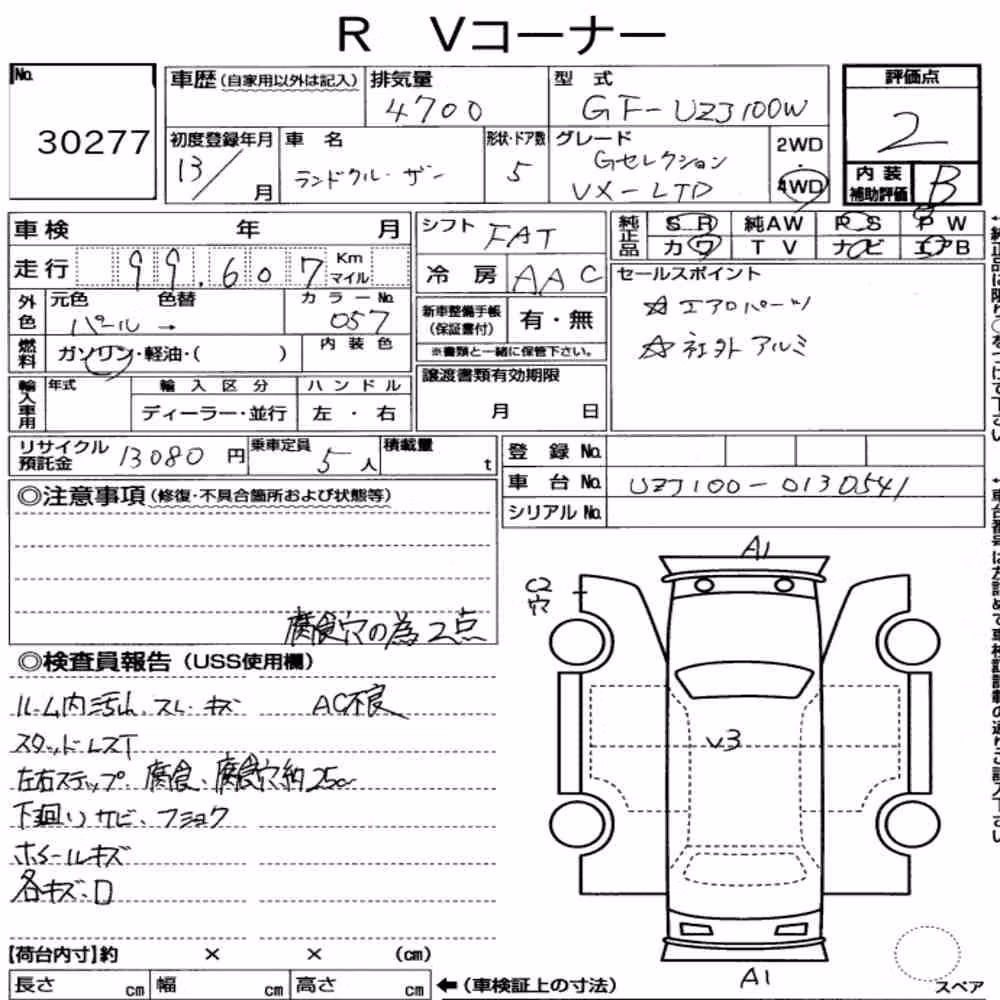 R Vコーナー
No. 30277
車歴(自家用以外は記入) 排気量 4700 型式 GF-UZJ100W
初度登録年月 13/月 車名 ランドクル・ザー 形状・ドア数 5 グレード Gセレクション VX-LTD 2WD・4WD
評価点 2
内装補助評価 B
車検 年 月
走行 99,607 Km マイル
外色 元色 パール → 色替 カラーNo. 057
燃料 ガソリン・軽油・( ) 内装色
輸入車用 年式 輸入区分 ディーラー・並行 ハンドル 左・右
シフト FAT
冷房 AAC
新車整備手帳(保証書付) 有・無
※書類と一緒に保管下さい。
譲渡書類有効期限 月 日
純正品 SR 純AW PS PW
カワ TV ナビ エアB
セールスポイント
☆エアロパーツ
☆社外アルミ
リサイクル預託金 13080円 乗車定員 5人 積載量 t
登録No.
車台No. UZJ100-0130541
シリアルNo.
◎注意事項(修復・不具合箇所および状態等)
腐食穴の為2点
◎検査員報告(USS使用欄)
ルーム内汚れ、スレ・キズ AC不良
スタッドレスT
左右ステップ 腐食、腐食穴約25cm
下廻りサビ、フショク
ホイールキズ
各キズ・凹
【荷台内寸】約 × × (cm)
長さ cm 幅 cm 高さ cm ←(車検証上の寸法)
A1
C2
穴
V3
A1
スペア